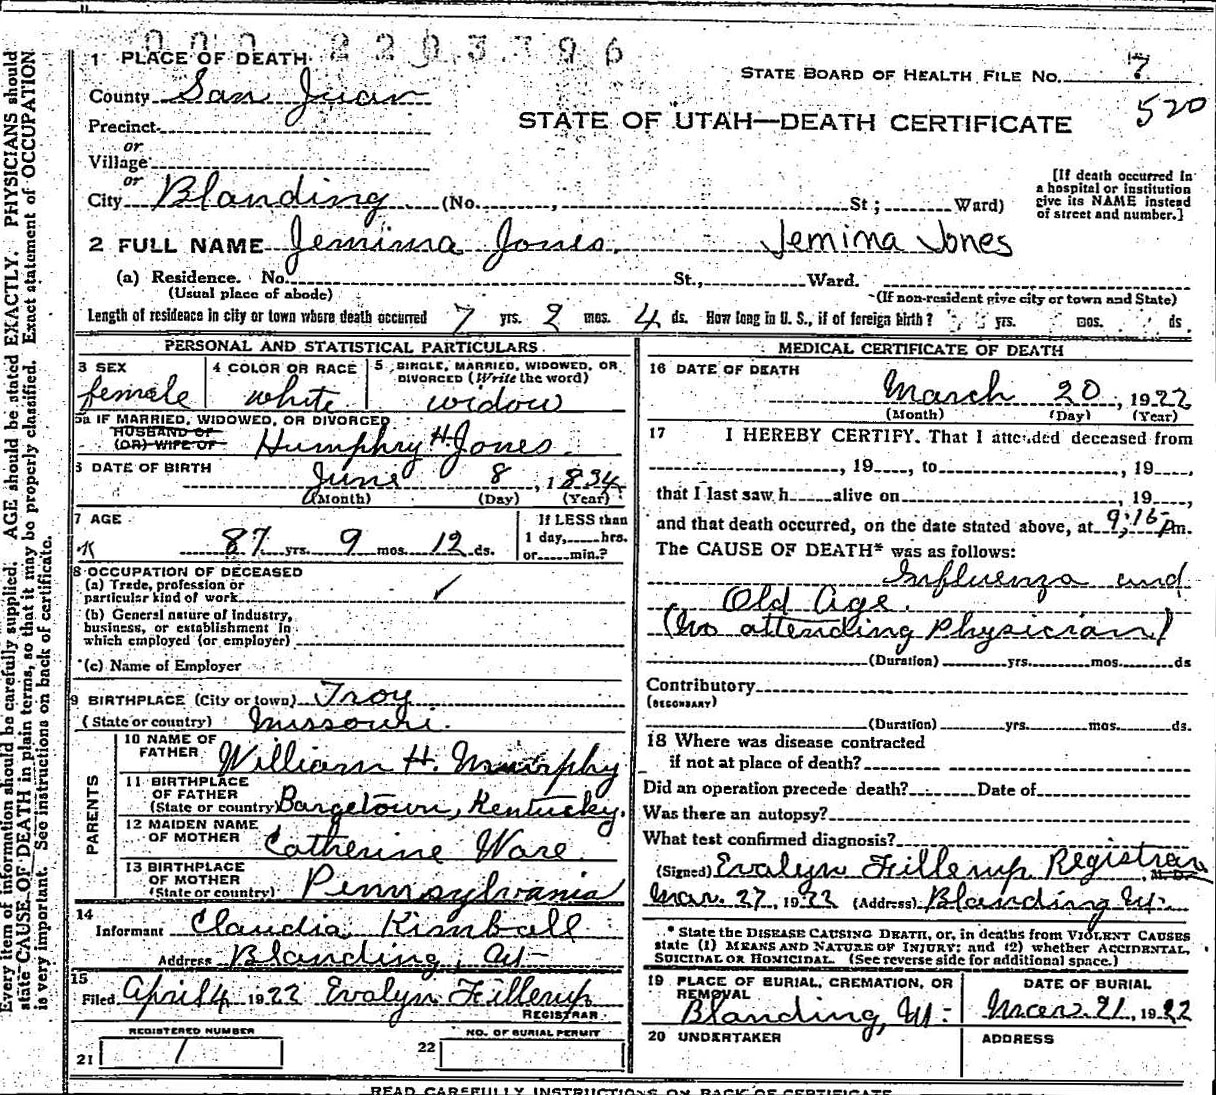 000 2203396
1 PLACE OF DEATH
STATE BOARD OF HEALTH FILE No. 7
County San Juan
520
STATE OF UTAH—DEATH CERTIFICATE
Precinct
or
Village
or
City Blanding (No. , St ; Ward)
[If death occurred in
a hospital or institution
give its NAME instead
of street and number.]
2 FULL NAME Jemima Jones. Jemima Jones
(a) Residence. No. St., Ward.
(Usual place of abode)
(If non-resident give city or town and State)
Length of residence in city or town where death occurred 7 yrs. 2 mos. 4 ds. How long in U. S., if of foreign birth? yrs. mos. ds
PERSONAL AND STATISTICAL PARTICULARS
3 SEX
female
4 COLOR OR RACE
white
5 SINGLE, MARRIED, WIDOWED, OR
DIVORCED (Write the word)
widow
5a IF MARRIED, WIDOWED, OR DIVORCED
HUSBAND OF
(OR) WIFE OF Humphry H. Jones.
6 DATE OF BIRTH
June 8, 1834
(Month) (Day) (Year)
7 AGE
87 yrs. 9 mos. 12 ds.
If LESS than
1 day, hrs.
or min.?
8 OCCUPATION OF DECEASED
(a) Trade, profession or
particular kind of work ✓
(b) General nature of industry,
business, or establishment in
which employed (or employer)
(c) Name of Employer
9 BIRTHPLACE (City or town) Troy
(State or country) Missouri.
PARENTS
10 NAME OF
FATHER William H. Murphy
11 BIRTHPLACE
OF FATHER
(State or country) Bargetown, Kentucky.
12 MAIDEN NAME
OF MOTHER Catherine Ware
13 BIRTHPLACE
OF MOTHER
(State or country) Pennsylvania
14
Informant Claudia Kimball
Address Blanding, Ut-
15
Filed April 4 1922 Evalyn Fillerup
REGISTRAR
REGISTERED NUMBER
21 1
NO. OF BURIAL PERMIT
22
MEDICAL CERTIFICATE OF DEATH
16 DATE OF DEATH
March 20, 1922
(Month) (Day) (Year)
17 I HEREBY CERTIFY. That I attended deceased from
, 19 , to , 19 ,
that I last saw h alive on 19 ,
and that death occurred, on the date stated above, at 9:15 Pm.
The CAUSE OF DEATH* was as follows:
Influenza and
Old Age.
(No attending Physician)
(Duration) yrs. mos. ds
Contributory
(SECONDARY)
(Duration) yrs. mos. ds.
18 Where was disease contracted
if not at place of death?
Did an operation precede death? Date of
Was there an autopsy?
What test confirmed diagnosis?
(Signed) Evalyn Fillerup Registrar
M. D.
Mar. 27, 1922 (Address) Blanding Ut.
* State the DISEASE CAUSING DEATH, or, in deaths from VIOLENT CAUSES
state (1) MEANS AND NATURE OF INJURY; and (2) whether ACCIDENTAL,
SUICIDAL OR HOMICIDAL. (See reverse side for additional space.)
19 PLACE OF BURIAL, CREMATION, OR
REMOVAL
Blanding, Ut-
DATE OF BURIAL
Mar. 21, 1922
20 UNDERTAKER
ADDRESS
READ CAREFULLY INSTRUCTIONS ON BACK OF CERTIFICATE
Every item of information should be carefully supplied. AGE should be stated EXACTLY. PHYSICIANS should
state CAUSE OF DEATH in plain terms, so that it may be properly classified. Exact statement of OCCUPATION
is very important. See instructions on back of certificate.